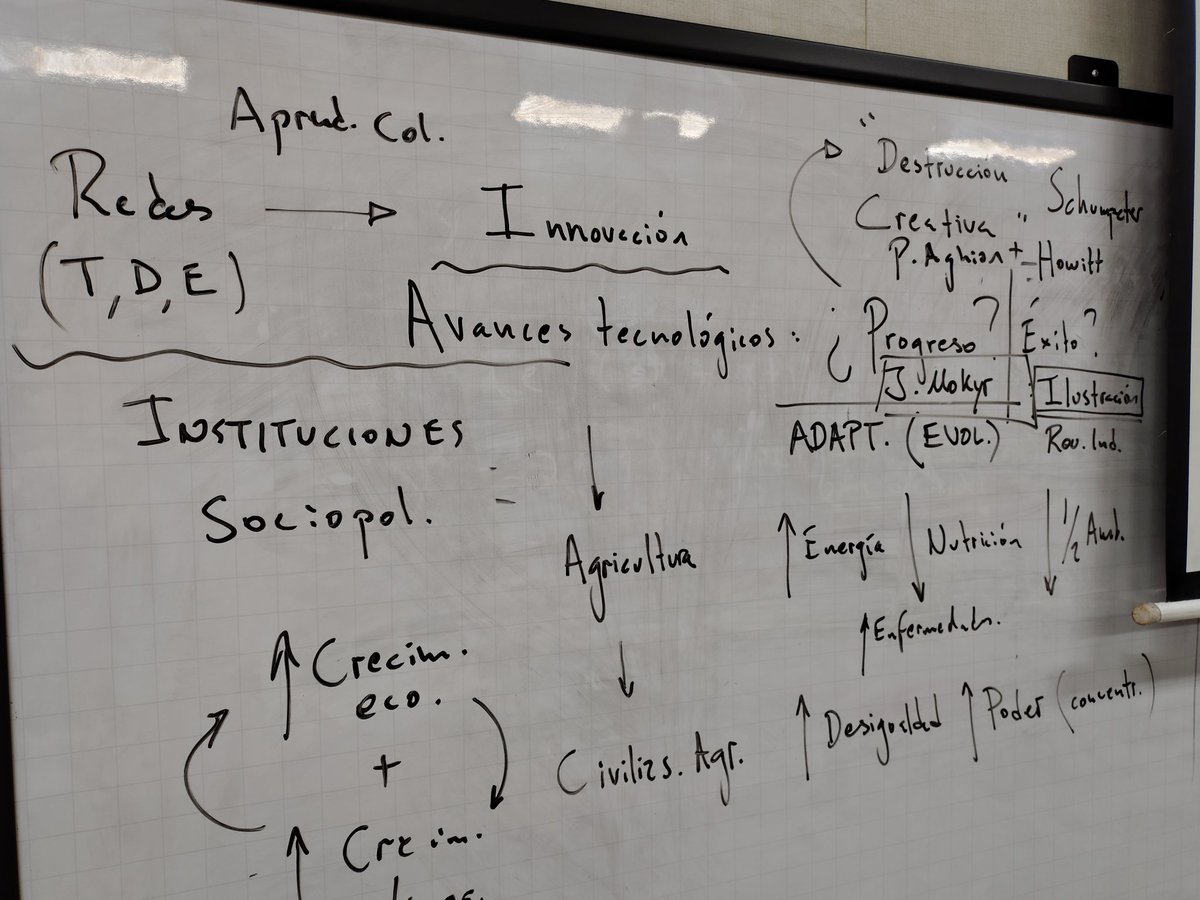 Aprend. Col.
Redes → Innovación
(T, D, E)
"Destrucción
Creativa" Schumpeter
P. Aghion + Howitt
Avances tecnológicos: ¿Progreso? Éxito?
J. Mokyr Ilustración
ADAPT. (EVOL.) Rev. Ind.
INSTITUCIONES
Sociopol.
↓
Agricultura
↑ Energía ↓ Nutrición ↓ 1/2 Amb.
↑ Enfermedads.
↓
Civilizs. Agr.
↑ Desigualdad ↑ Poder (concentr.)
↑ Crecim.
eco.
+
↑ Crecim.